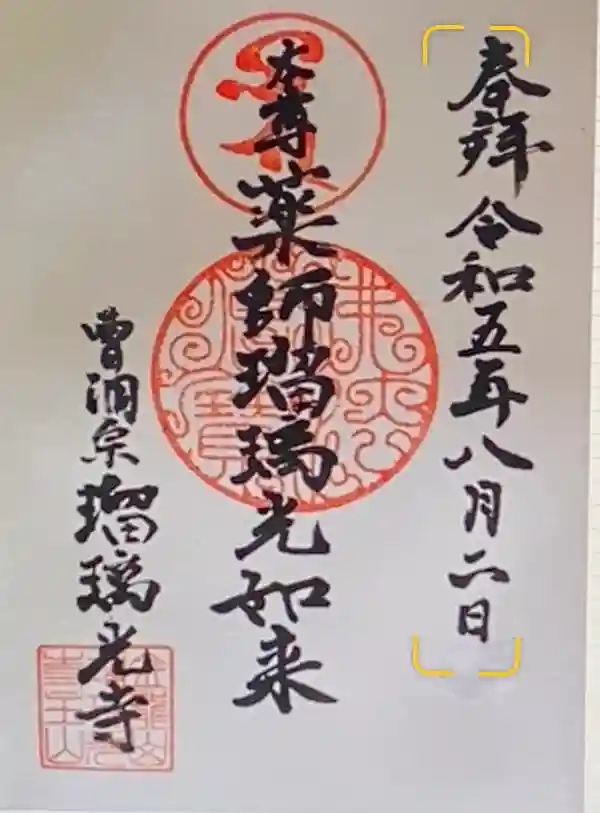 奉拝 令和五年八月二日
本尊 薬師瑠璃光如来
曹洞宗 瑠璃光寺